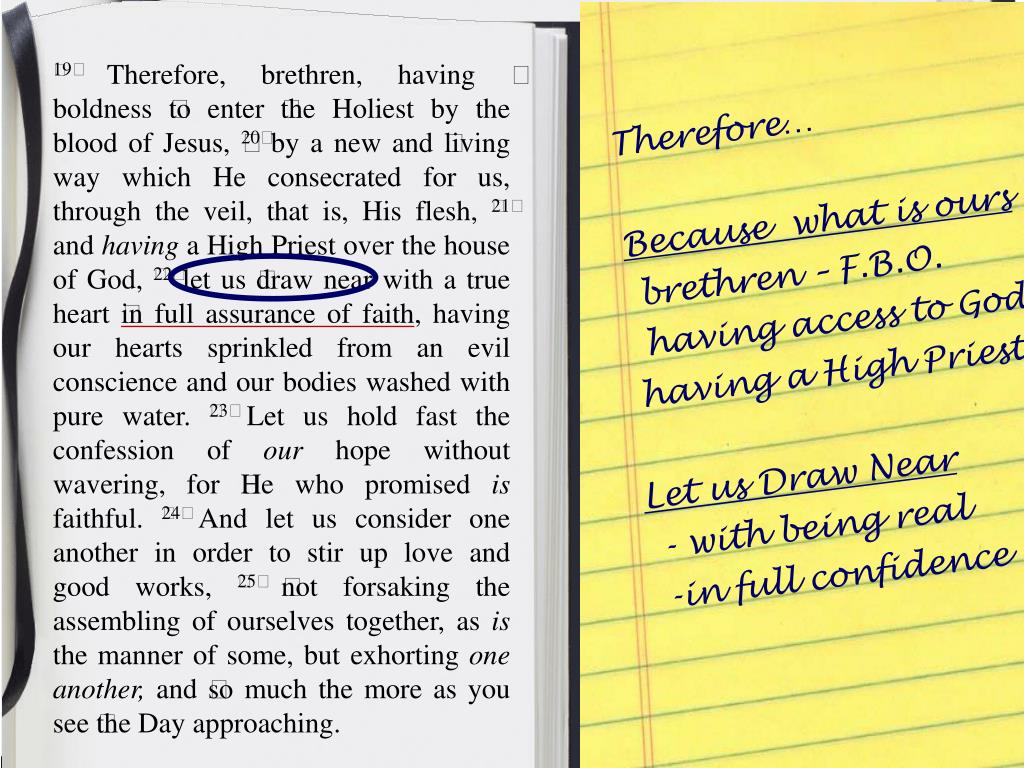 19 Therefore, brethren, having
boldness to enter the Holiest by the
blood of Jesus, 20 by a new and living
way which He consecrated for us,
through the veil, that is, His flesh, 21
and having a High Priest over the house
of God, 22 let us draw near with a true
heart in full assurance of faith, having
our hearts sprinkled from an evil
conscience and our bodies washed with
pure water. 23 Let us hold fast the
confession of our hope without
wavering, for He who promised is
faithful. 24 And let us consider one
another in order to stir up love and
good works, 25 not forsaking the
assembling of ourselves together, as is
the manner of some, but exhorting one
another, and so much the more as you
see the Day approaching.
Therefore...
Because what is ours
brethren – F.B.O.
having access to God
having a High Priest
Let us Draw Near
- with being real
-in full confidence